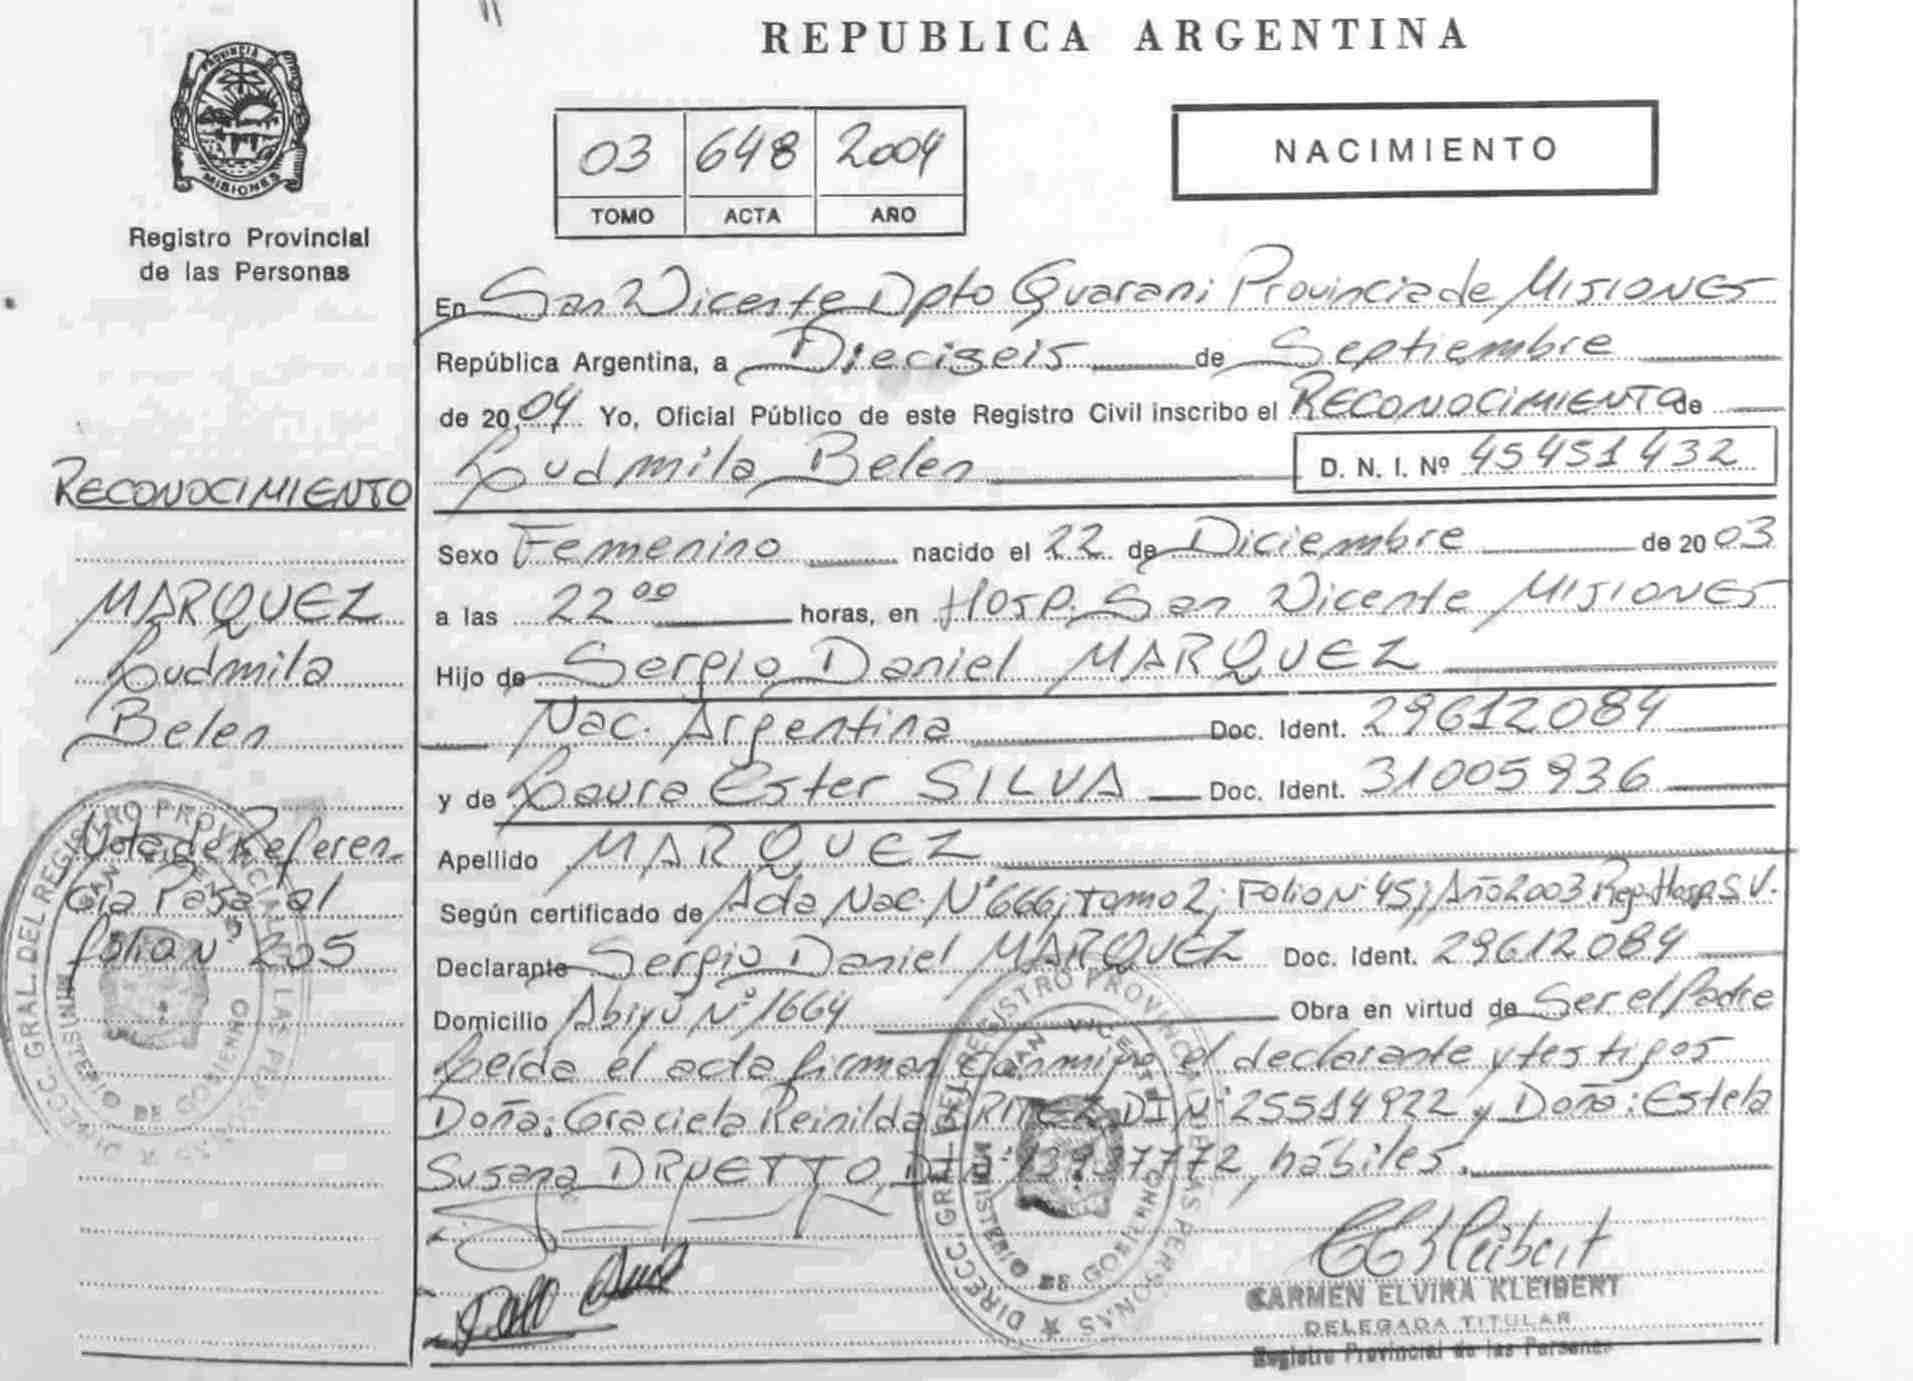 REPUBLICA ARGENTINA
PROVINCIA DE
MISIONES
Registro Provincial
de las Personas
03 648 2004
TOMO ACTA AÑO
NACIMIENTO
En San Vicente Dpto Guarani Provincia de MISIONES
República Argentina, a Dieciseis de Septiembre
de 2004 Yo, Oficial Público de este Registro Civil inscribo el RECONOCIMIENTO de
Ludmila Belen D. N. I. Nº 45451432
Sexo Femenino nacido el 22 de Diciembre de 2003
a las 22 00 horas, en Hosp. San Vicente MISIONES
Hijo de Sergio Daniel MARQUEZ
Nac. Argentina Doc. Ident. 29612084
y de Laura Ester SILVA Doc. Ident. 31005936
Apellido MARQUEZ
Según certificado de Acta Nac. Nº 666; Tomo 2; Folio Nº 45; Año 2003 Reg. Hosp. S.V.
Declarante Sergio Daniel MARQUEZ Doc. Ident. 29612084
Domicilio Abiyú Nº 1664 Obra en virtud de Ser el Padre
Leída el acta firman conmigo el declarante y testigos
Doña: Graciela Reinilda DI Nº 25514922 y Doña: Estela
Susana DRUETTO, hábiles.
RECONOCIMIENTO
MARQUEZ
Ludmila
Belen
Nota de Referen-
cia Pasa al
folio Nº 205
DIRECC. GRAL. DEL REGISTRO PROVINCIAL DE LAS PERSONAS
MINISTERIO DE GOBIERNO
SAN VICENTE
DIRECC. GRAL. DEL REGISTRO PROVINCIAL DE LAS PERSONAS
MINISTERIO DE GOBIERNO
SAN VICENTE
CEKleibert
CARMEN ELVIRA KLEIBERT
DELEGADA TITULAR
Registro Provincial de las Personas